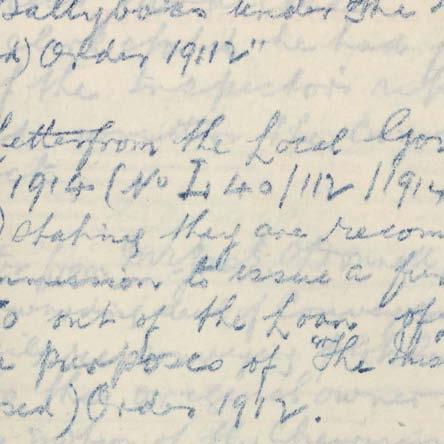 Ballybois under The
d) Order 1912"
Letter from the Local Gov
1914 (No L 40/112/1914
) stating they are recom
mmission to issue a fu
0 out of the Loan of
e purposes of "The
sed) Order 1912.